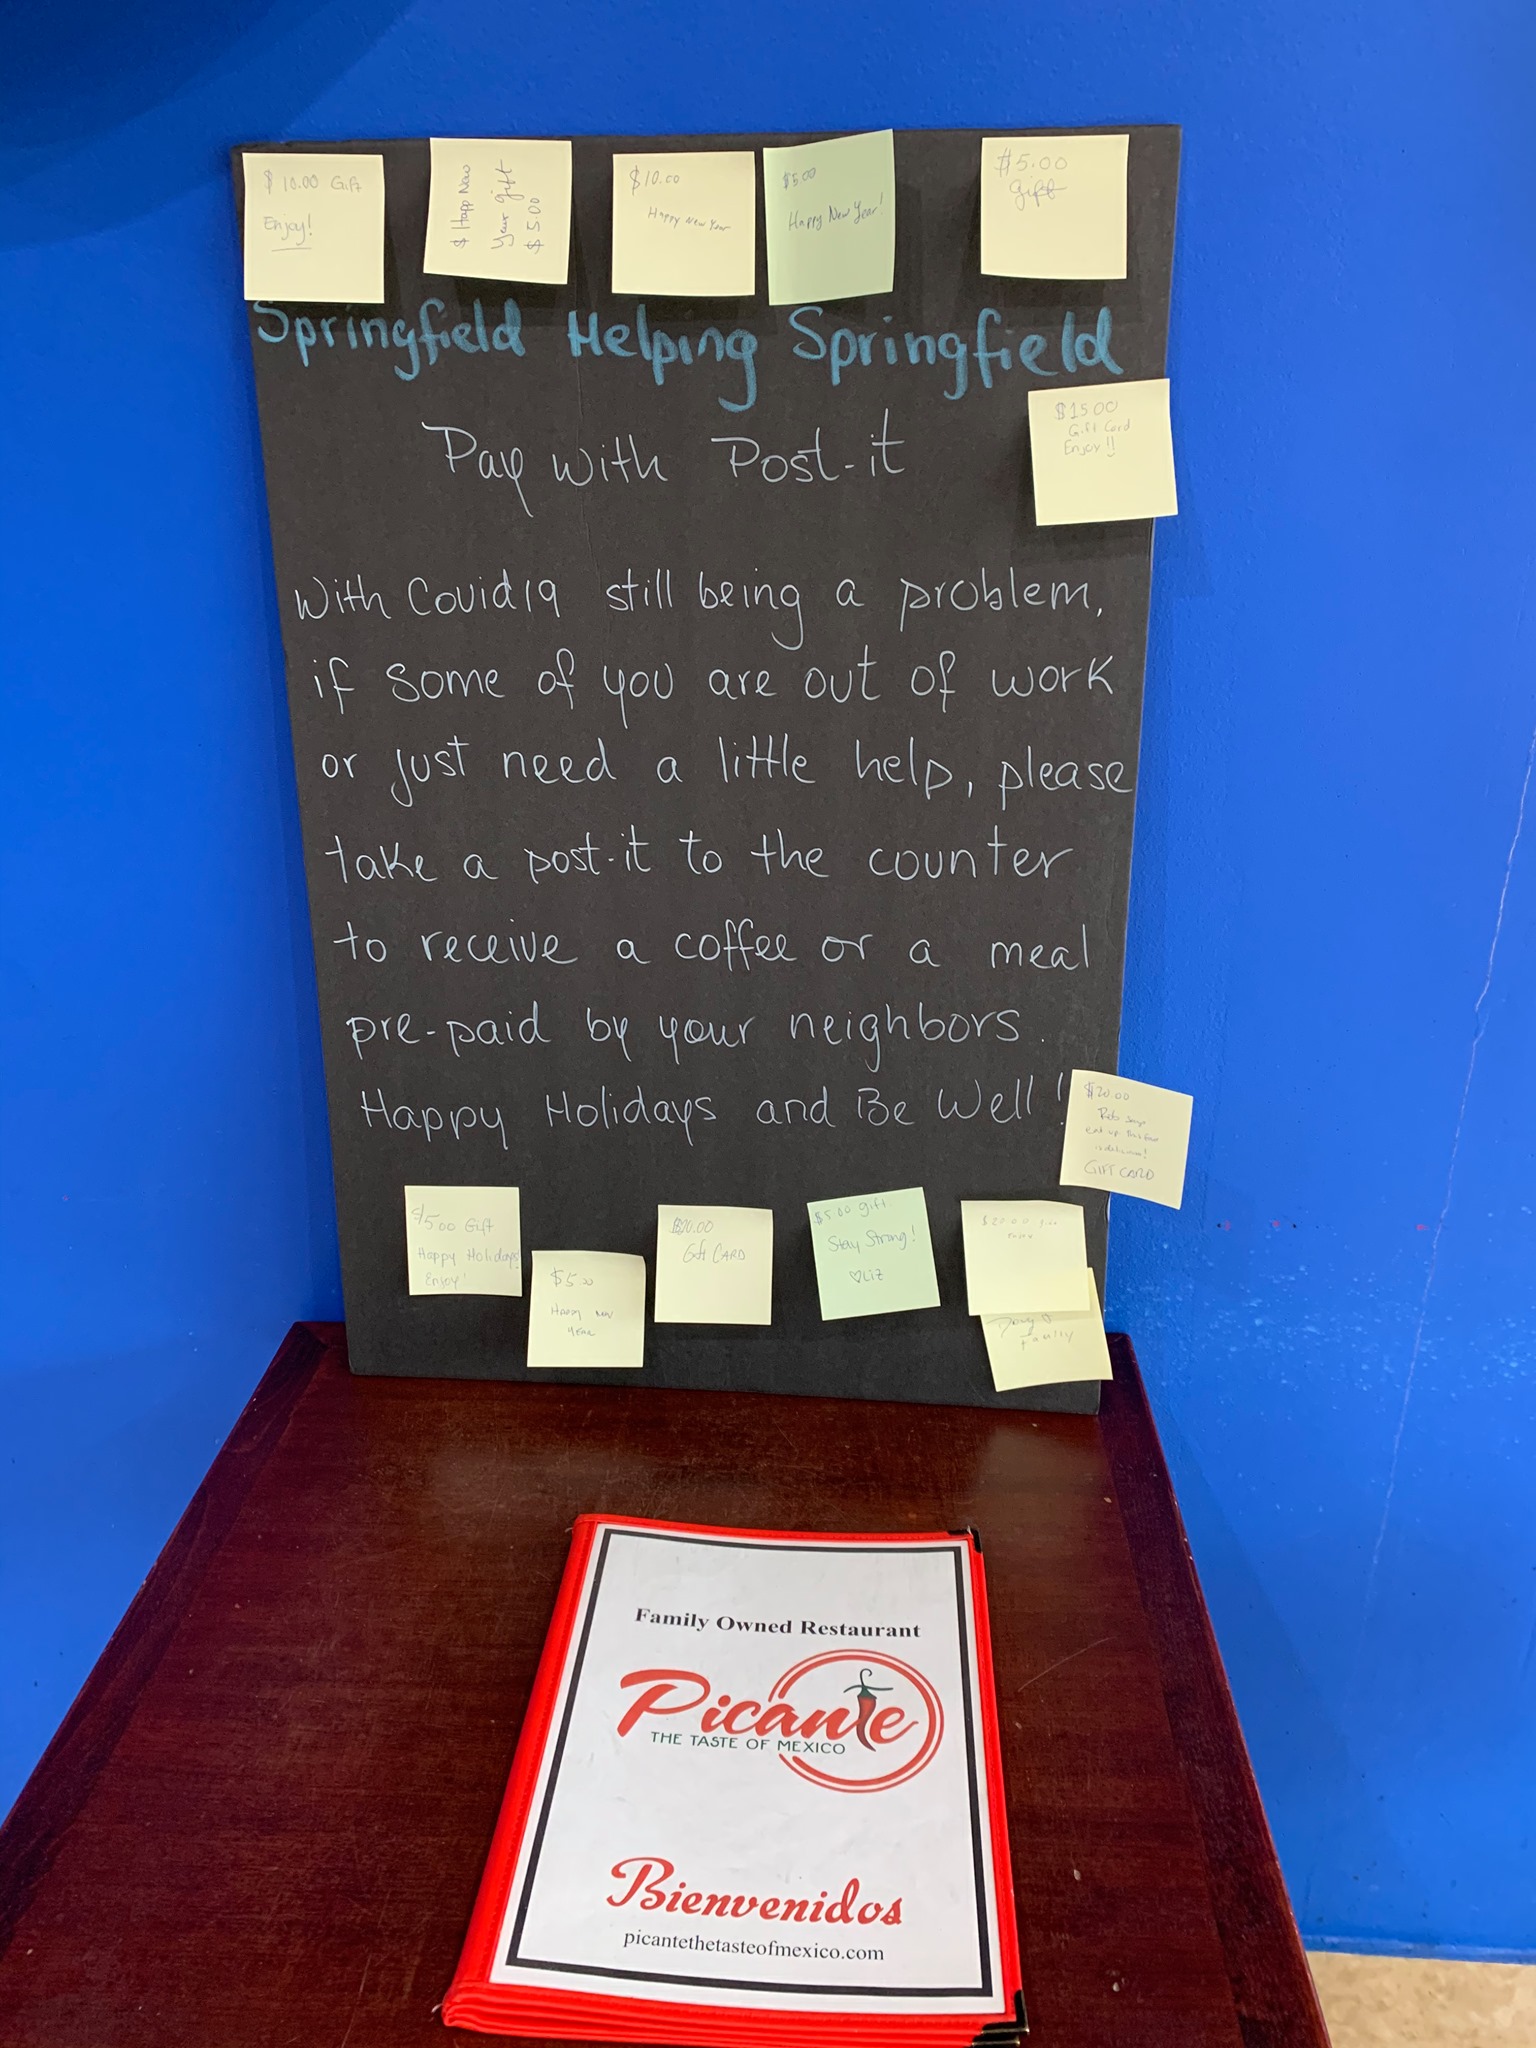 $10.00 Gift
Enjoy!
$ Happ New
Year gift
$5.00
$10.00
Happy New Year
$5.00
Happy New Year!
$5.00
gift
Springfield Helping Springfield
Pay with Post-it
$15.00
Gift Card
Enjoy!!
With Covid19 still being a problem,
if some of you are out of work
or just need a little help, please
take a post-it to the counter
to receive a coffee or a meal
pre-paid by your neighbors.
Happy Holidays and Be Well!
$20.00
Rob says
eat up this food
is delicious!
GIFT CARD
$5.00 Gift
Happy Holidays!
Enjoy!
$5.00
Happy New
Year
$20.00
Gift CARD
$5.00 gift
Stay Strong!
♡Liz
$20.00 gift
Family
Family Owned Restaurant
Picante
THE TASTE OF MEXICO
Bienvenidos
picantethetasteofmexico.com